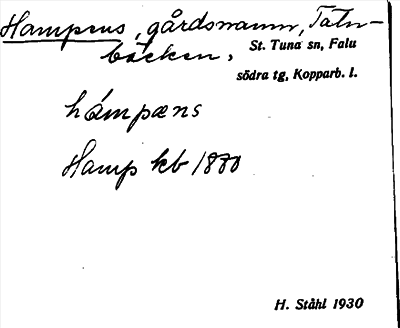 Hampens, gårdsnamn, Tatn-
bäcken,
St. Tuna sn, Falu
södra tg, Kopparb. l.
hámpæns
Hamp kb 1880
H. Ståhl 1930